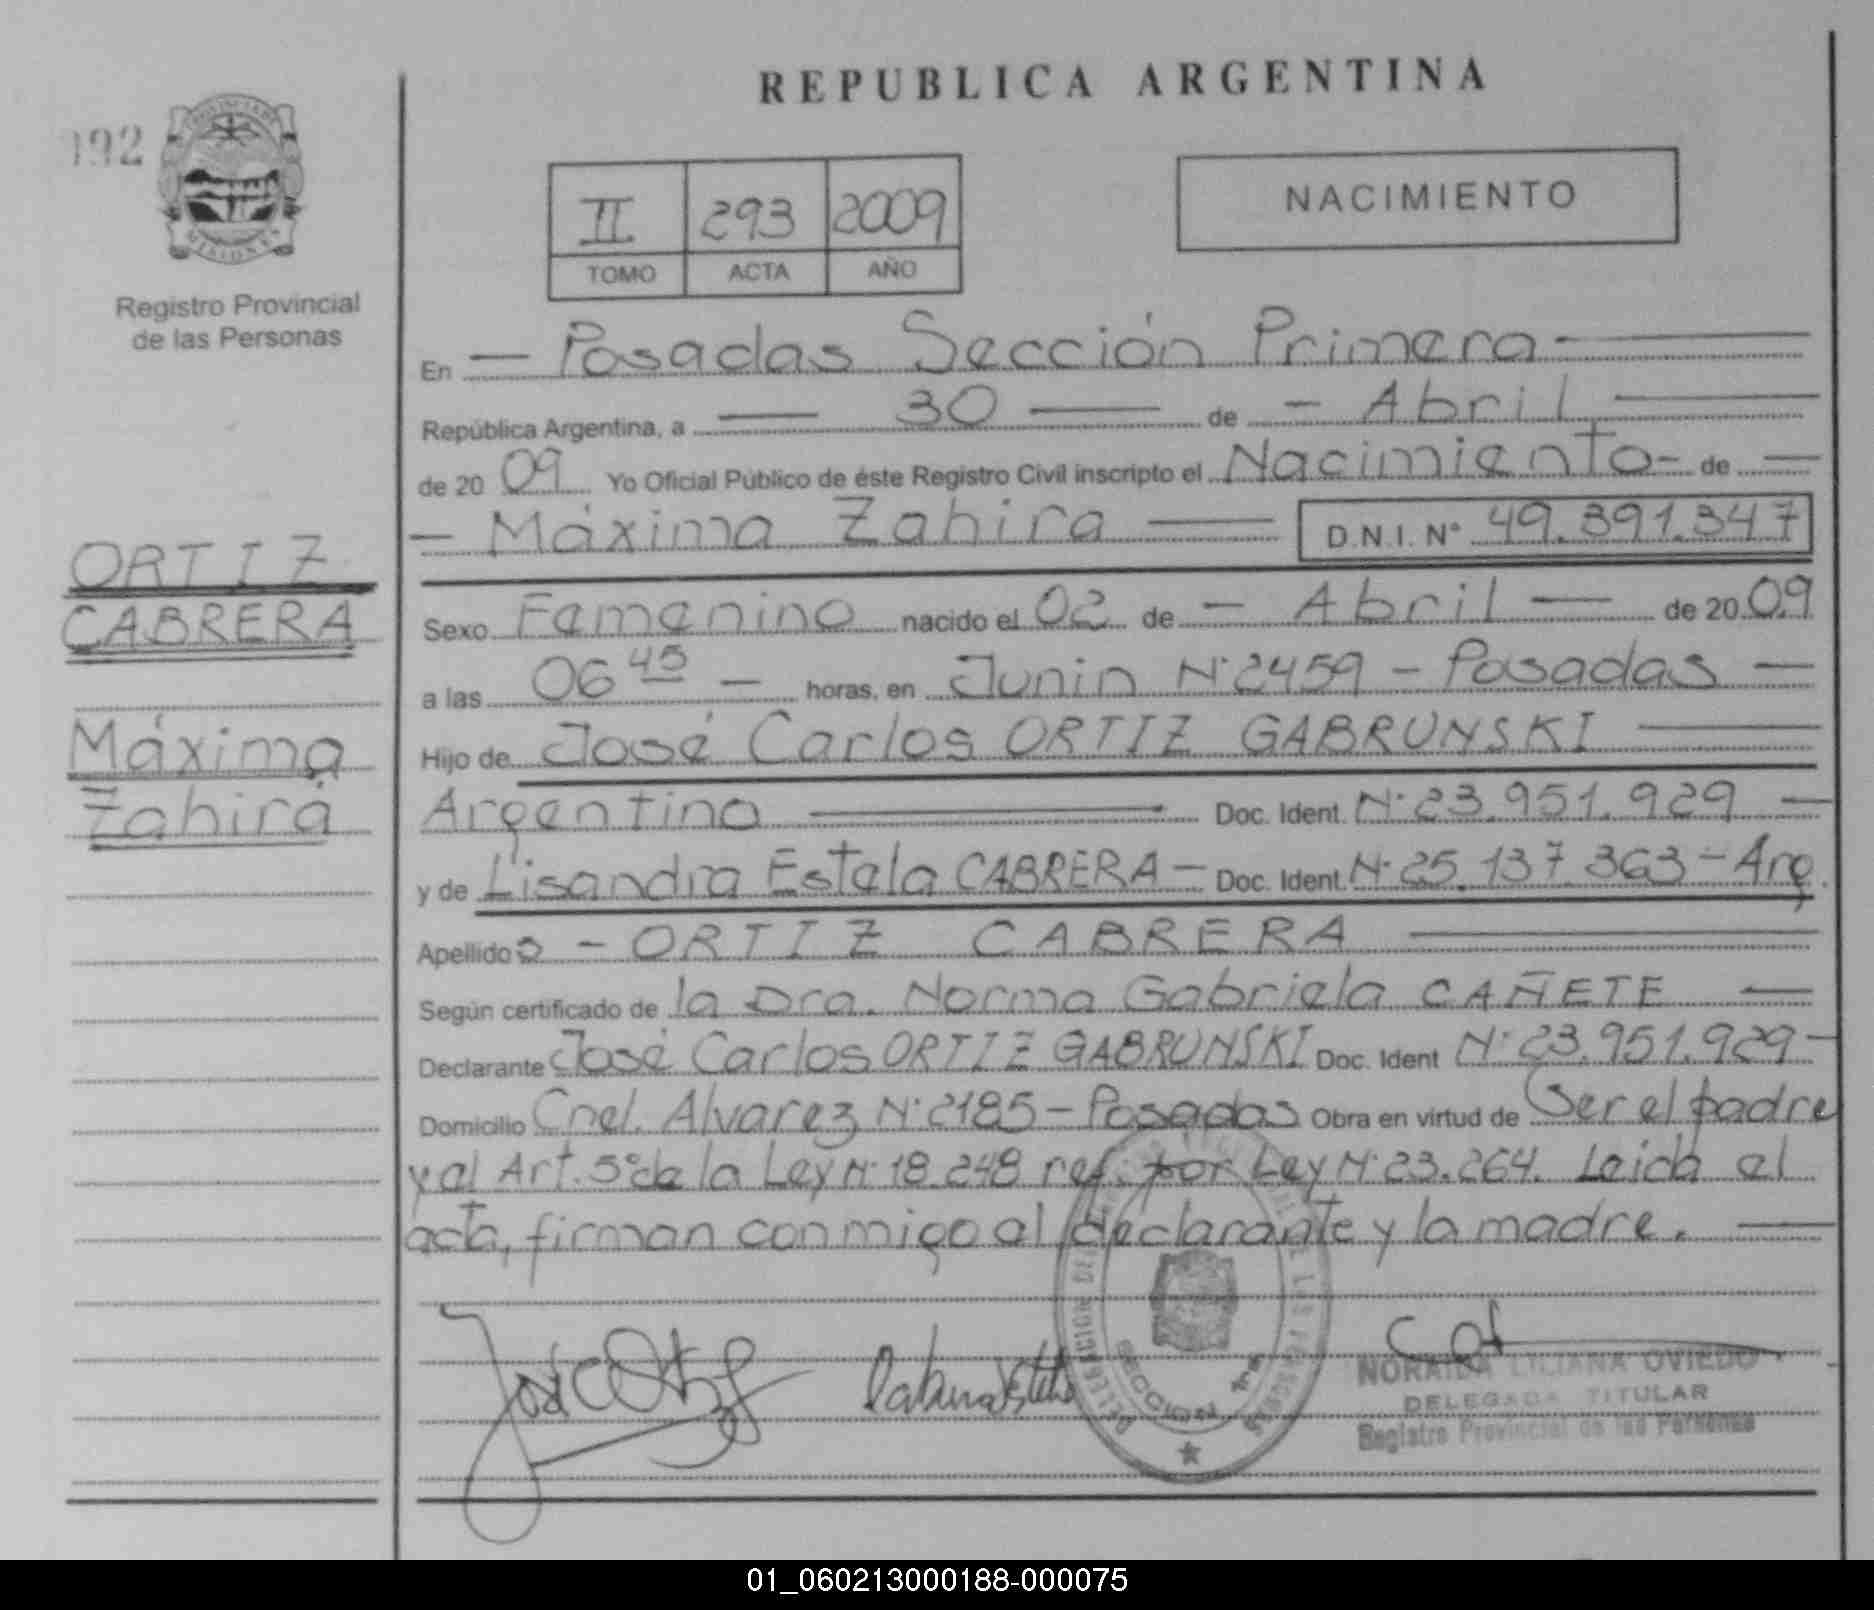 REPUBLICA ARGENTINA
192
PROVINCIA DE
MISIONES
Registro Provincial
de las Personas
II 293 2009
TOMO ACTA AÑO
NACIMIENTO
En — Posadas Sección Primera —
República Argentina, a — 30 — de — Abril —
de 20 09 Yo Oficial Público de éste Registro Civil inscripto el Nacimiento - de —
— Máxima Zahira — D.N.I. N° 49.391.347
ORTIZ
CABRERA
Máxima
Zahira
Sexo Femenino nacido el 02 de — Abril — de 20 09
a las 06 45 — horas, en Junin N° 2459 - Posadas —
Hijo de José Carlos ORTIZ GABRUNSKI —
Argentino — Doc. Ident. N° 23.951.929 —
y de Lisandra Estela CABRERA — Doc. Ident. N° 25.137.363 - Arg.
Apellidos - ORTIZ CABRERA —
Según certificado de la Dra. Norma Gabriela CAÑETE —
Declarante José Carlos ORTIZ GABRUNSKI Doc. Ident N° 23.951.929 -
Domicilio Cnel. Alvarez N° 2185 - Posadas Obra en virtud de Ser el padre
y al Art. 5° de la Ley N° 18.248 ref. por Ley N° 23.264. Leida el
acta, firman conmigo el declarante y la madre. —
NORAIDA LILIANA OVIEDO
DELEGADA TITULAR
Registro Provincial de las Personas
01_060213000188-000075